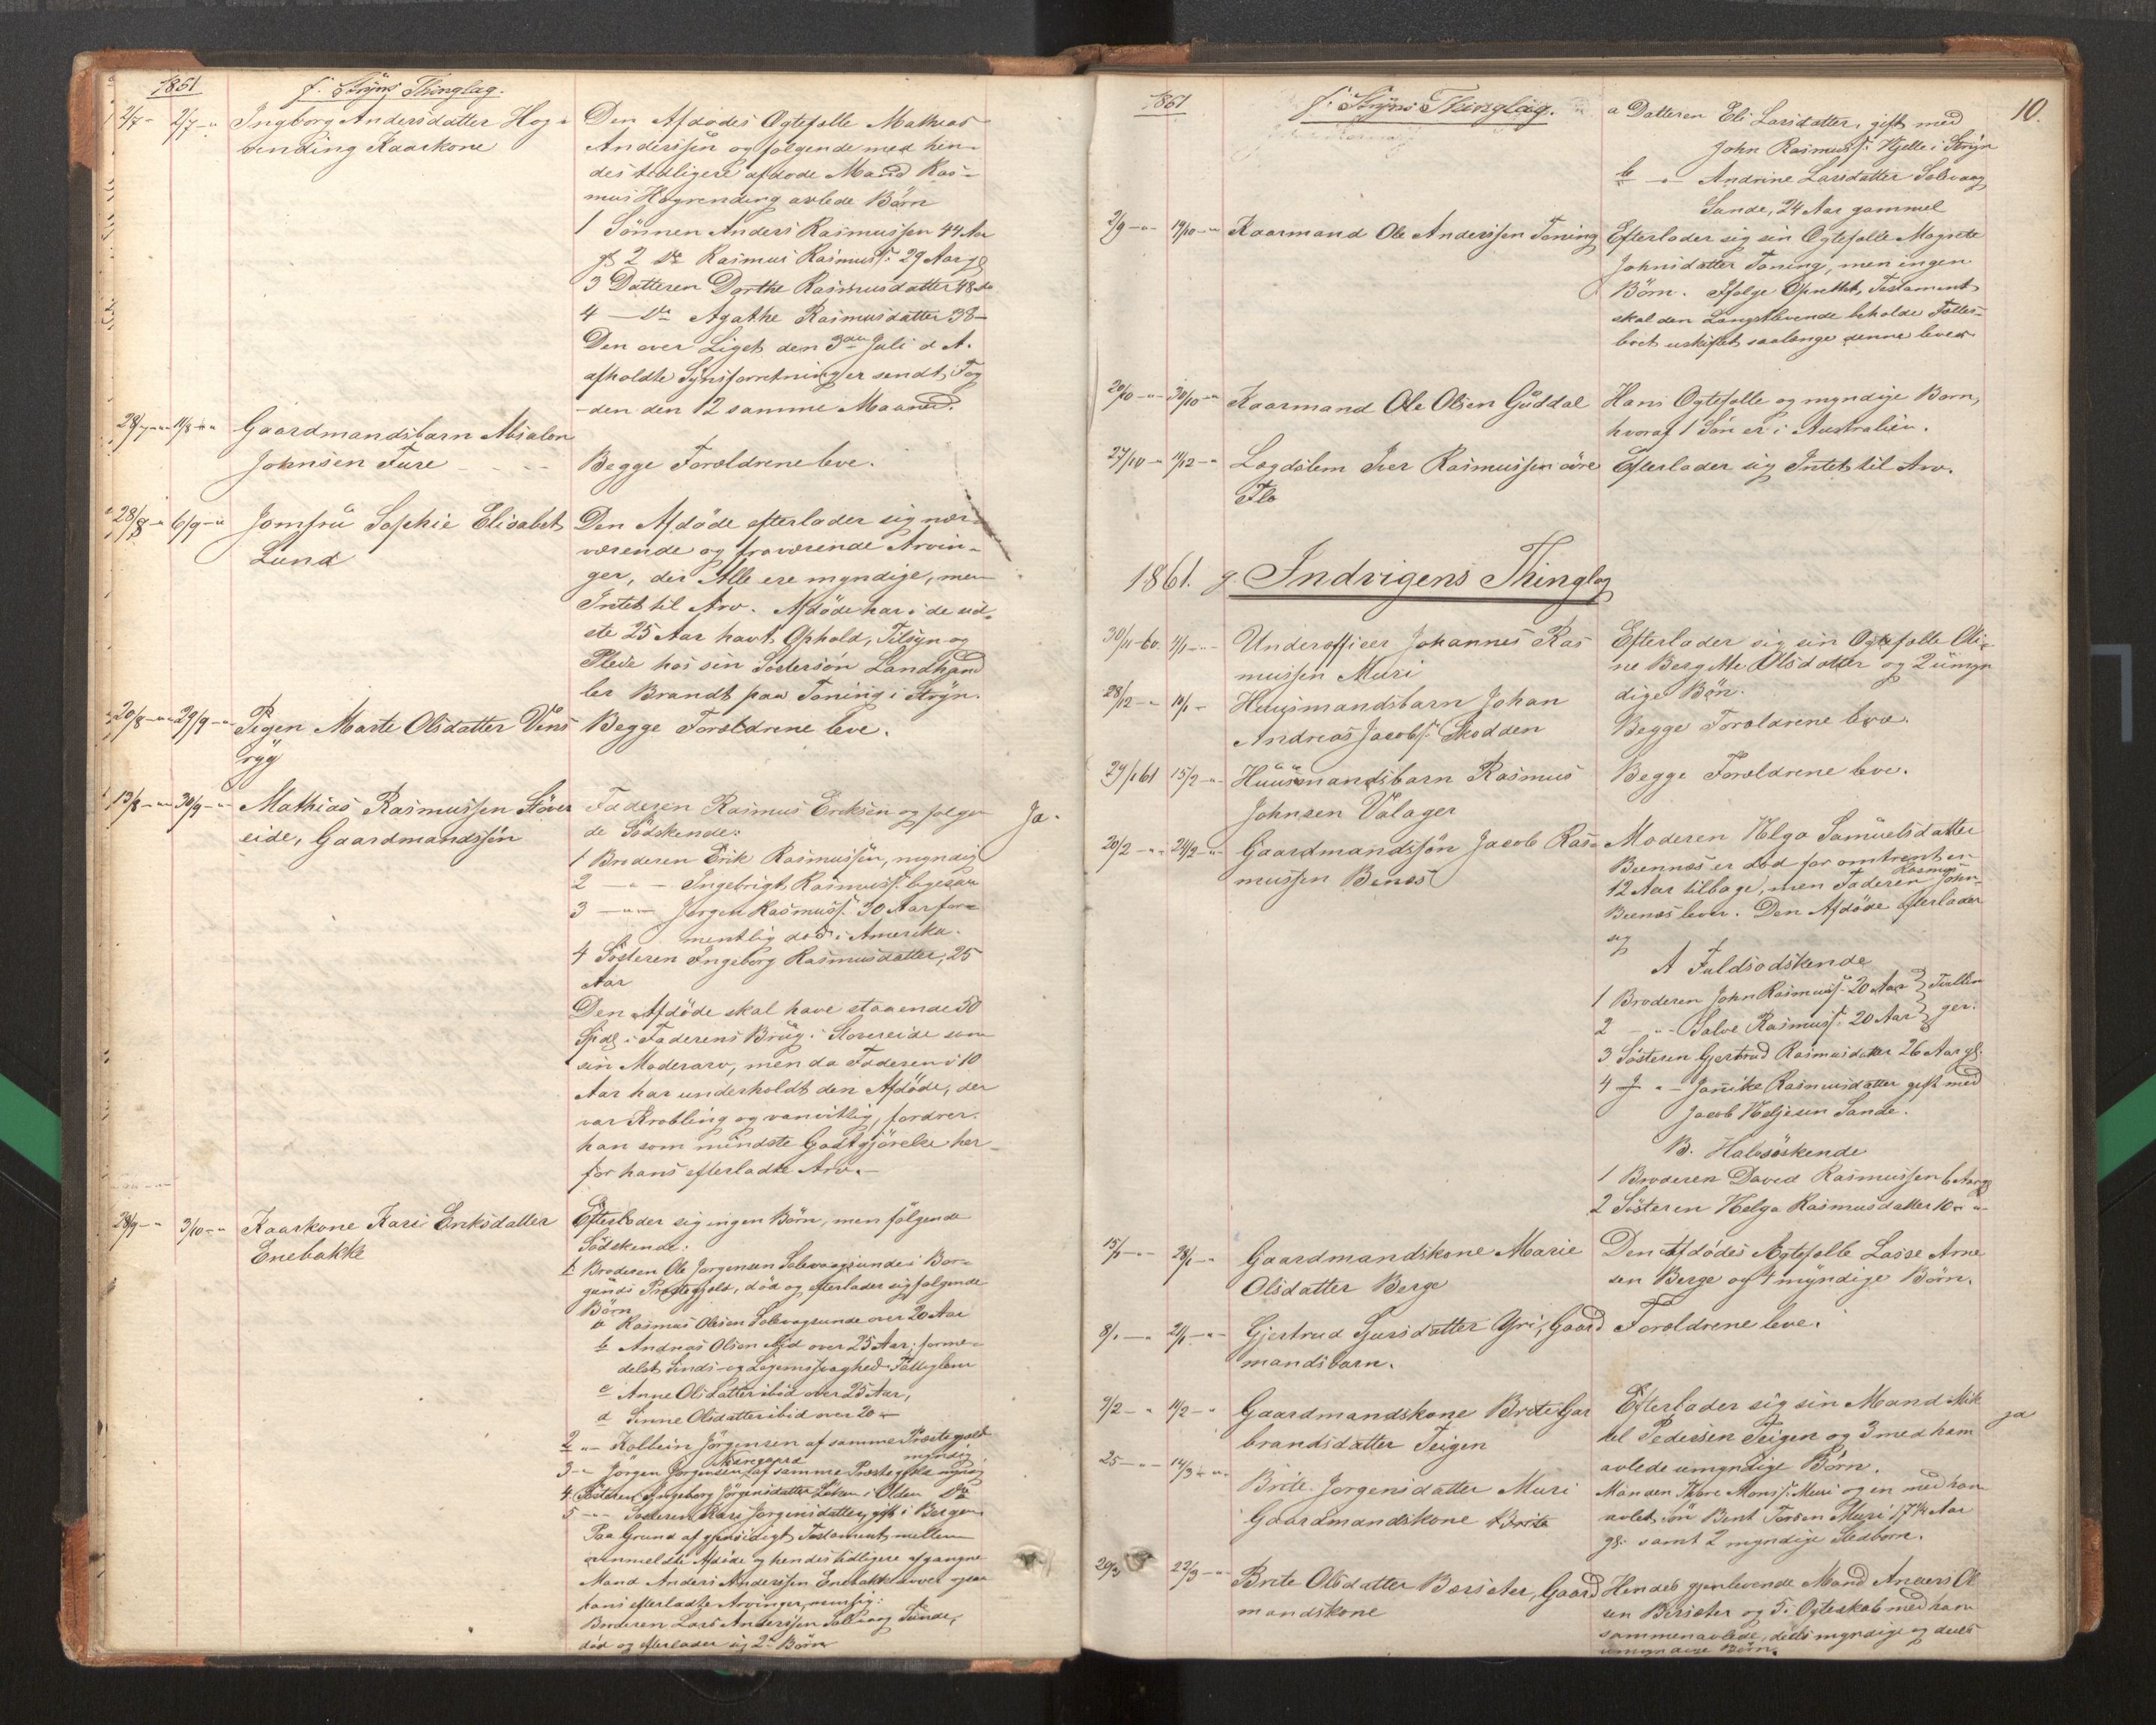 1861
f. Stryns Thinglag.
2/7 - 2/7 - " Ingborg Andersdatter Hog=
vending Kaarkone
Den Afdødes Ægtefælle Mathias
Anderssen og følgende med hen-
des tidligere afdøde Mand Ras-
mus Hogvending avlede Børn
1 Sønnen Anders Rasmussen 44 Aar
gl 2 do Rasmus Rasmuss. 29 Aar gl
3 Datteren Dorthe Rasmusdatter 48 do
4 — do Agathe Rasmusdatter 38 —
Den over Liget den 3die Juli d. A.
afholdte Synsforretning er sendt Fog
-den den 12 samme Maaned.
28/7 - " 11/8 - " Gaardmandsbarn Absalon
Johnsen Ture - - - Begge Forældrene leve.
28/8 - " 6/9 - " Jomfru Sophie Elisabet
Lund
Den Afdøde efterlader sig nær-
værende og fraværende Arvin-
ger, der Alle ere myndige, men
Intet til Arv. Afdøde har i de sid-
ste 25 Aar havt Ophold, Tilsyn og
Pleie hos sin Søstersøn Landhand
ler Brandt paa Toning i Stryn.
20/8 - " 29/9 - " Pigen Marte Olsdatter Vins
ryg
Begge Forældrene leve.
13/8 - " 30/9 - " Mathias Rasmussen Støver
eide, Gaardmandssøn
Faderen Rasmus Eriksen og følgen
de Sødskende:
Ja.
1 Broderen Erik Rasmussen, myndig
2 — " — Ingebrigt Rasmuss. ligesaa
3 — " — Jørgen Rasmuss. 30 Aar for-
mentlig død i Amerika.
4 Søsteren Ingeborg Rasmusdatter, 25
Aar
Den Afdøde skal have staaende 50
Spd i Faderens Brug i Støvereide som
sin Moderarv, men da Faderen i 10
Aar har underholdt den Afdøde, der
var Krøbling og vanvittig, fordrer
han som mindste Godtgjørelse her-
for hans efterladte Arv. —
28/9 - " 3/10 - " Kaarkone Kari Eriksdatter
Enebakke
Efterlader sig ingen Børn, men følgende
Sødskende:
1 Broderen Ole Jørgensen Solevaagsunde i Bor-
gunds Præstegjeld, død og efterlader sig følgende
Børn
a Rasmus Olesen Solevagsunde over 20 Aar
b Andreas Olsen ibid over 25 Aar, forme-
delst Sinds- og Legemssvaghed Fattiglem
c Anne Olsdatter ibid over 25 Aar,
d Sinne Olsdatter ibid over 20 —
2 " — Kolbein Jørgensen af samme Præstegjeld
myndig
3 - " Jørgen Jørgensen af samme Præstegjeld myndig
4. Søsteren Ingeborg Jørgensdatter Løken i Olden do
5 — " — Søsteren Kari Jørgensdatter, gift i Bergen
Paa Grund af gjensidigt Testament mellem
anmeldte Afdøde og hendes tidligere afgangne
Mand Anders Anderssen Enebakke arver ogsaa
hans efterladte Arvinger, nemlig:
Broderen Lars Anderssen Solevaag Sunde,
død og efterlader sig 2de Børn
1861
f. Stryns Thinglag.
10.
a Datteren Eli Larsdatter, gift med
John Rasmuss. Hjelle i Stryn
b — " — Andrine Larsdatter Solevaag
Sunde, 24 Aar gammel
2/9 - " 19/10 - " Kaarmand Ole Anderssen Toning
Efterlader sig sin Ægtefælle Magrete
Johnsdatter Toning, men ingen
Børn. Ifølge Oprettet Testament
skal den Længstlevende beholde Fælles-
boet uskiftet saalænge denne lever.
20/10 - " 30/10 - " Kaarmand Ole Olsen Guddal
Hans Ægtefælle og myndige Børn,
hvoraf 1 Søn er i Australien.
27/10 - " 11/12 - " Lægdslem Iver Rasmussen øvre
Flo
Efterlader sig Intet til Arv.
1861. g. Indvigens Thinglag
30/11-60. 4/1 - " Underofficer Johannes Ras
mussen Muri
Efterlader sig sin Ægtefælle Oli-
ne Bergitte Olsdatter og 2 umyn
dige Børn.
28/12 - " 16/1 - Huusmandsbarn Johan
Andreas Jacobs. Skodden
Begge Forældrene leve.
27/1 61 15/2 - " Huusmandsbarn Rasmus
Johnsen Valager
Begge Forældrene leve.
20/2 - " 24/2 - " Gaardmandssøn Jacob Ras-
mussen Benæs
Moderen Helga Samuelsdatter
Beennæs er død for omtrent en
12 Aar tilbage, men Faderen Rasmus John-
Beenæs lever. Den Afdøde efterlader
sig
A Fuldsødskende
1 Broderen John Rasmuss. 20 Aar } Tvillin
2 — " — Salve Rasmuss. 20 Aar } ger.
3 Søsteren Gjertrud Rasmusdatter 26 Aar gl.
4 — " — Jannike Rasmusdatter gift med
Jacob Heljesen Sande.
B. Halvsøskende
1 Broderen David Rasmussen 6 Aar gl
2 Søsteren Helga Rasmusdatter 10 " "
15/1 - " 28/1 - " Gaardmandskone Marie
Olsdatter Berge
Den Afdødes Ægtefælle Lasse Arne
sen Berge og 4 myndige Børn.
8/1 - " 21/1 - " Gjertrud Sjursdatter Yri, Gaard
mandsbarn.
Forældrene leve.
9/2 - " 11/2 - " Gaardmandskone Brite Gar
brandsdatter Teigen
Efterlader sig sin Mand Mik
kel Pedersen Teigen og 3 med ham
avlede umyndige Børn.
ja
25 - " 14/3 - " Brite Jørgensdatter Muri
Gaardmandskone Brite
Manden Tore Monss. Muri og en med ham
avlet Søn Bent Toresen Muri 17 1/2 Aar
gl. samt 2 myndige Stedbørn.
20/3 22/3 - " Brite Olsdatter Bersæter, Gaard
mandskone
Hendes gjenlevende Mand Anders Ol
sen Bersæter og 5 i Ægteskab med ham
sammenavlede, deels myndige og deels
umyndige Børn.